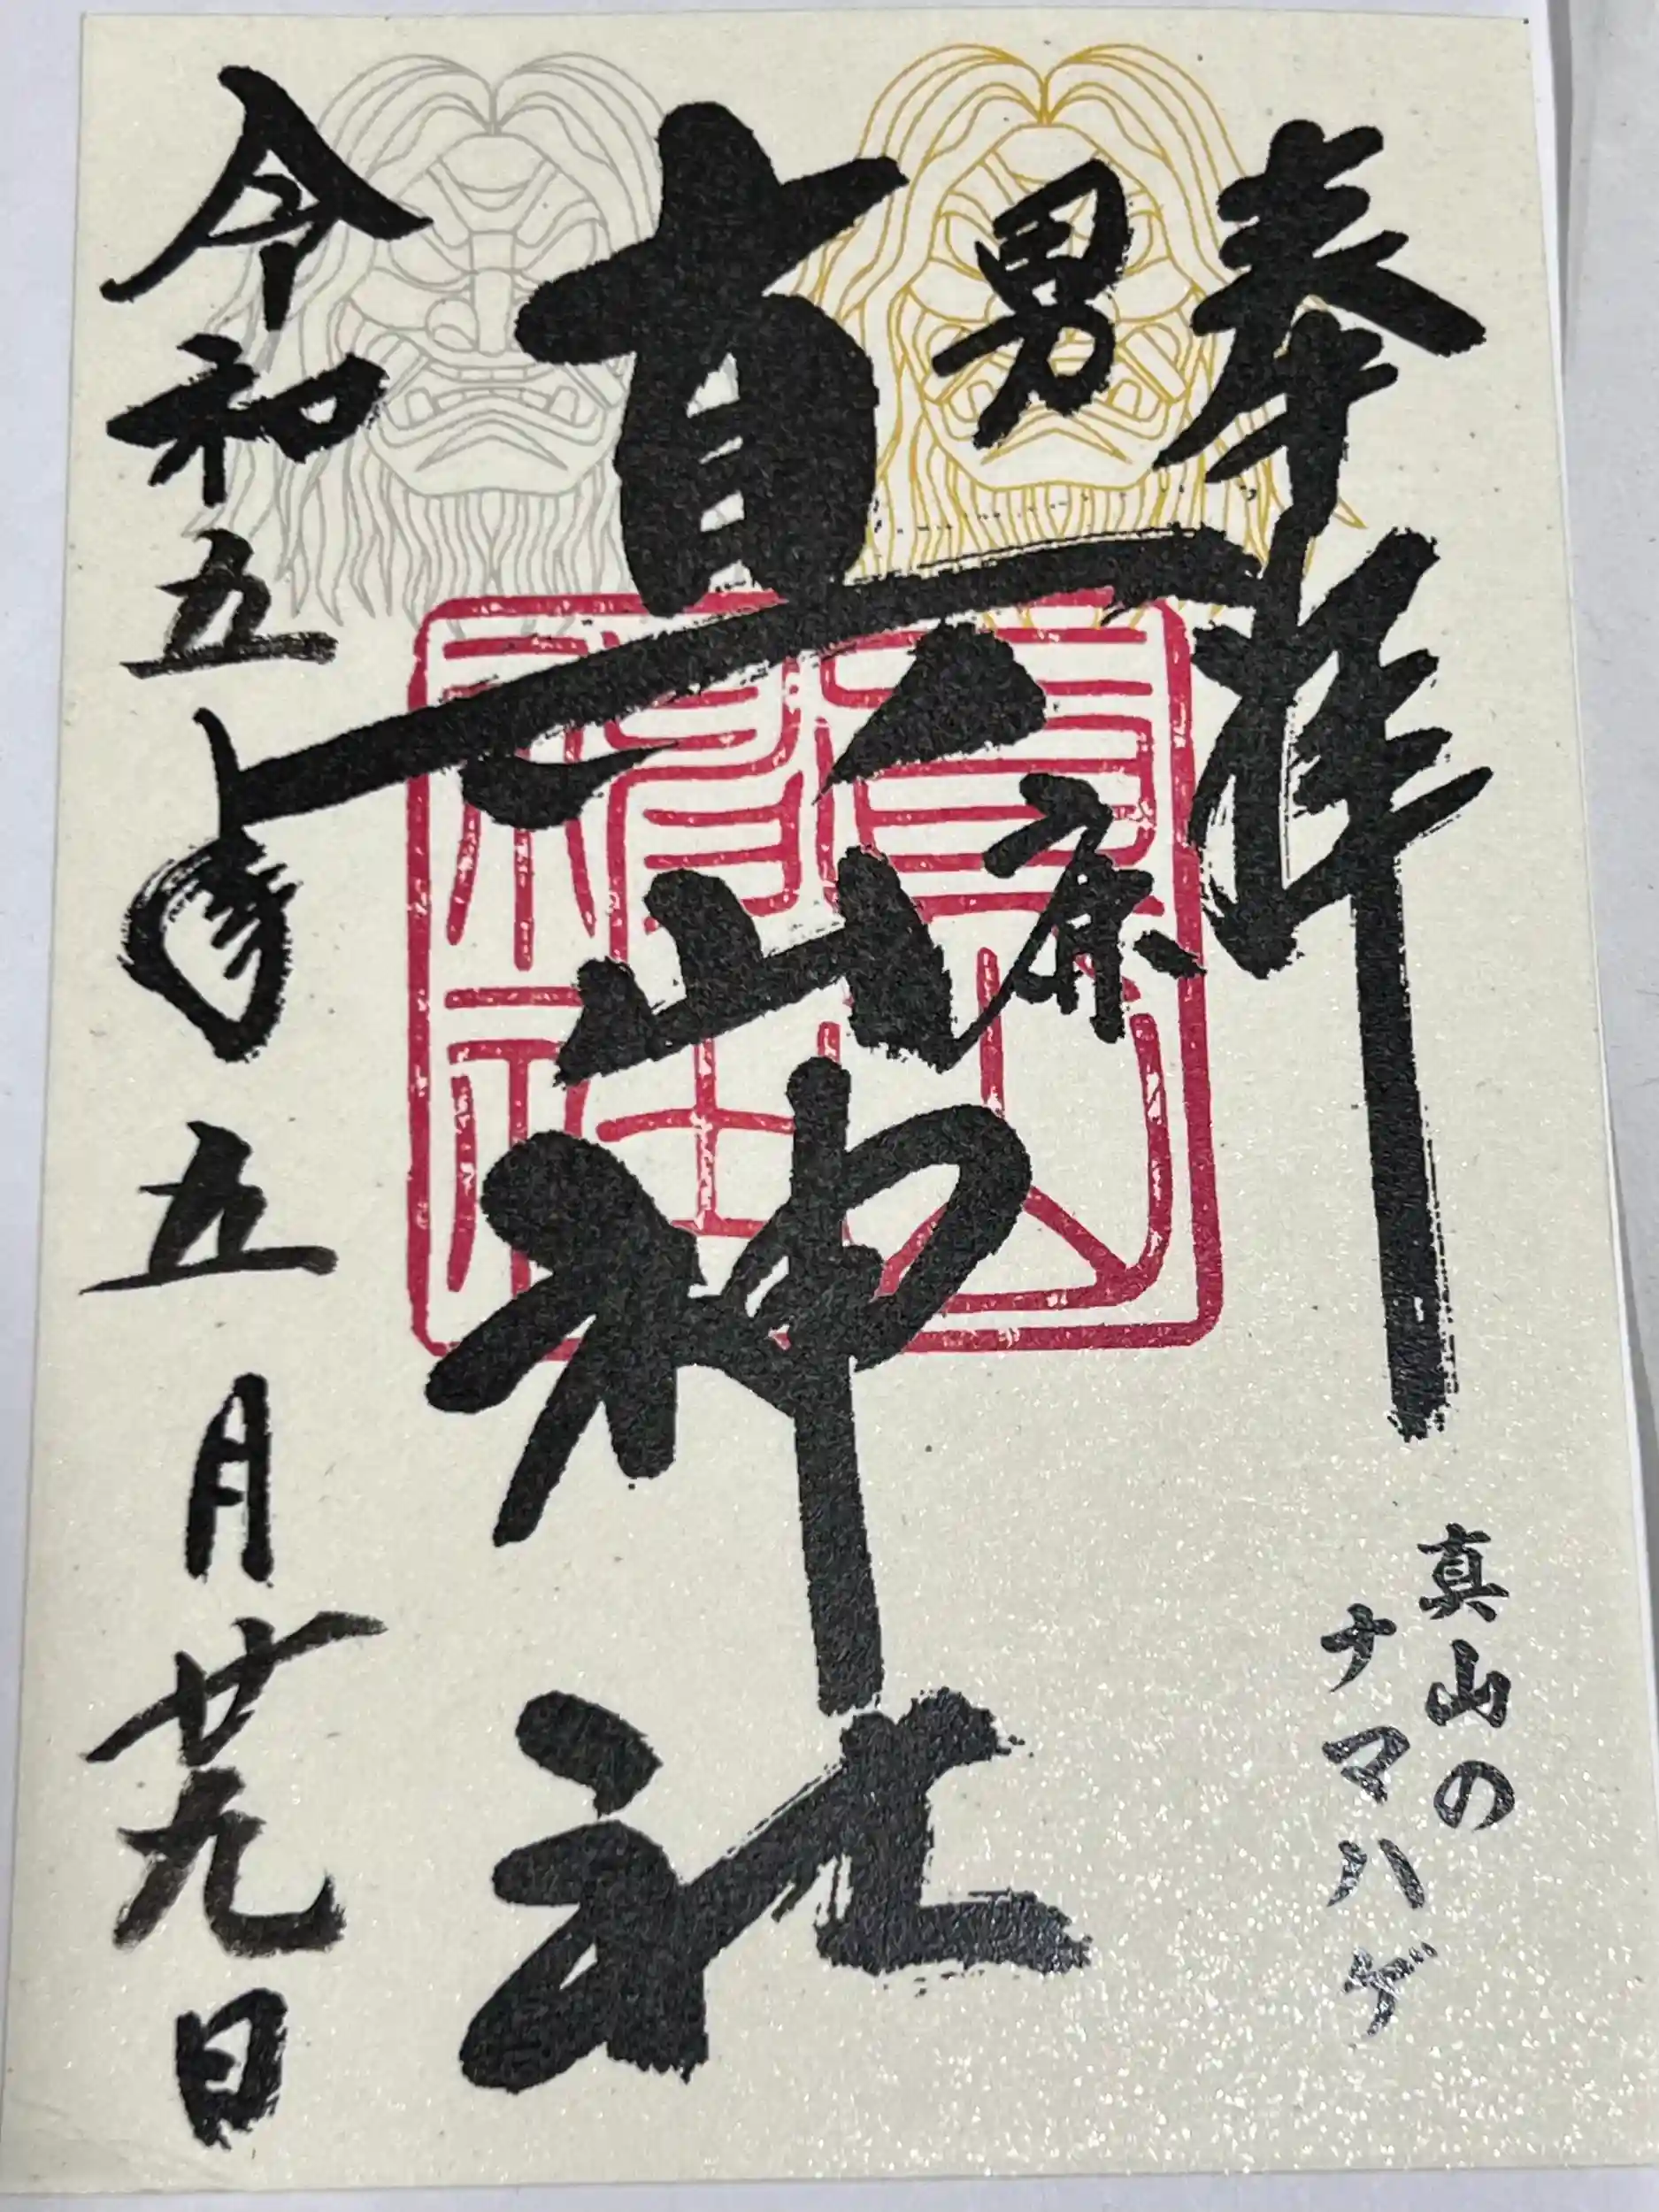 奉拝
真山の
ナマハゲ
男鹿
真山神社
真山
神社
令和五年五月廿九日